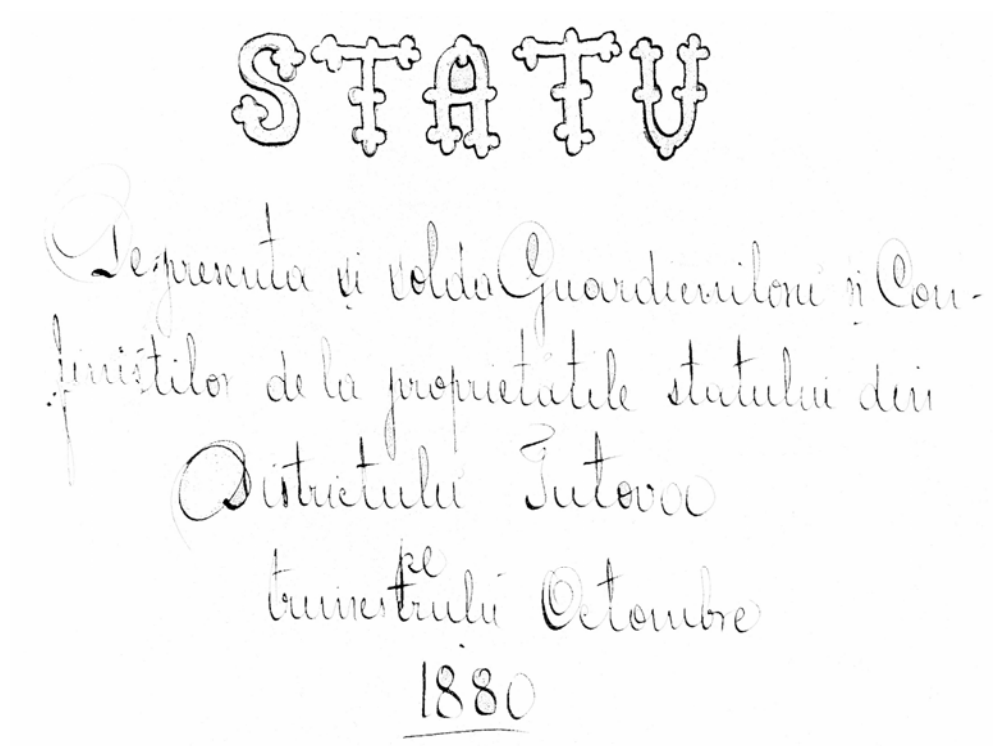 STATU
De presenta și solda Guardieniloru și Con-
finiștilor de la proprietățile statului din
Districtulu Tutova
pe
trimestrulu Octombre
1880